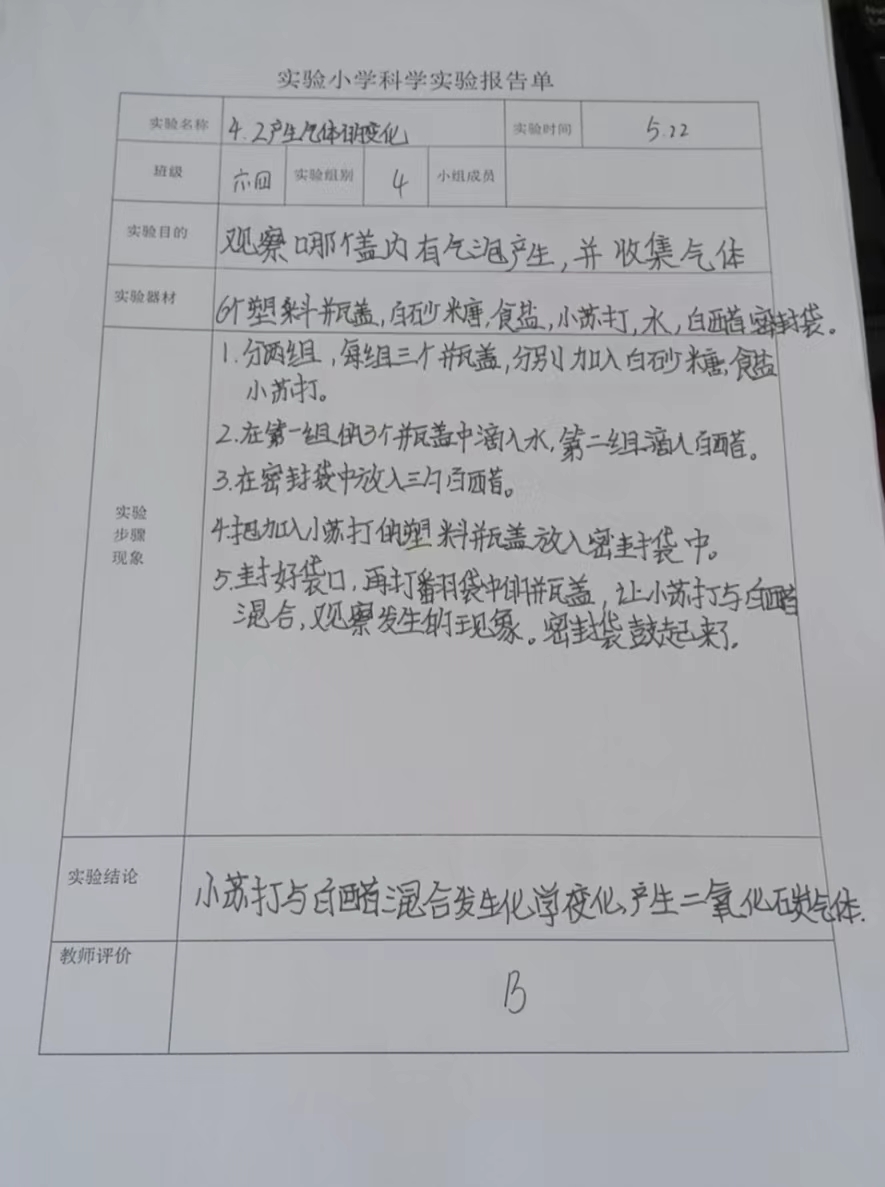 实验小学科学实验报告单
实验名称 4.2产生气体的变化 实验时间 5.22
班级 六四 实验组别 4 小组成员
实验目的 观察哪个盖内有气泡产生,并收集气体
实验器材 6个塑料瓶盖,白砂糖,食盐,小苏打,水,白醋密封袋。
1.分两组,每组三个瓶盖,分别加入白砂糖,食盐
小苏打。
2.在第一组的3个瓶盖中滴入水,第二组滴入白醋。
3.在密封袋中放入三勺白醋。
实验
步骤
现象
4.把加入小苏打的塑料瓶盖放入密封袋中。
5.封好袋口,再打翻袋中的瓶盖,让小苏打与白醋
混合,观察发生的现象。密封袋鼓起来了。
实验结论 小苏打与白醋混合发生化学变化,产生二氧化碳气体.
教师评价 B